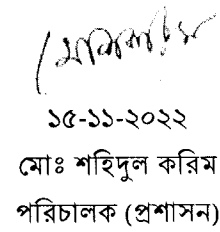 ১৫-১১-২০২২
মোঃ শহিদুল করিম
পরিচালক (প্রশাসন)